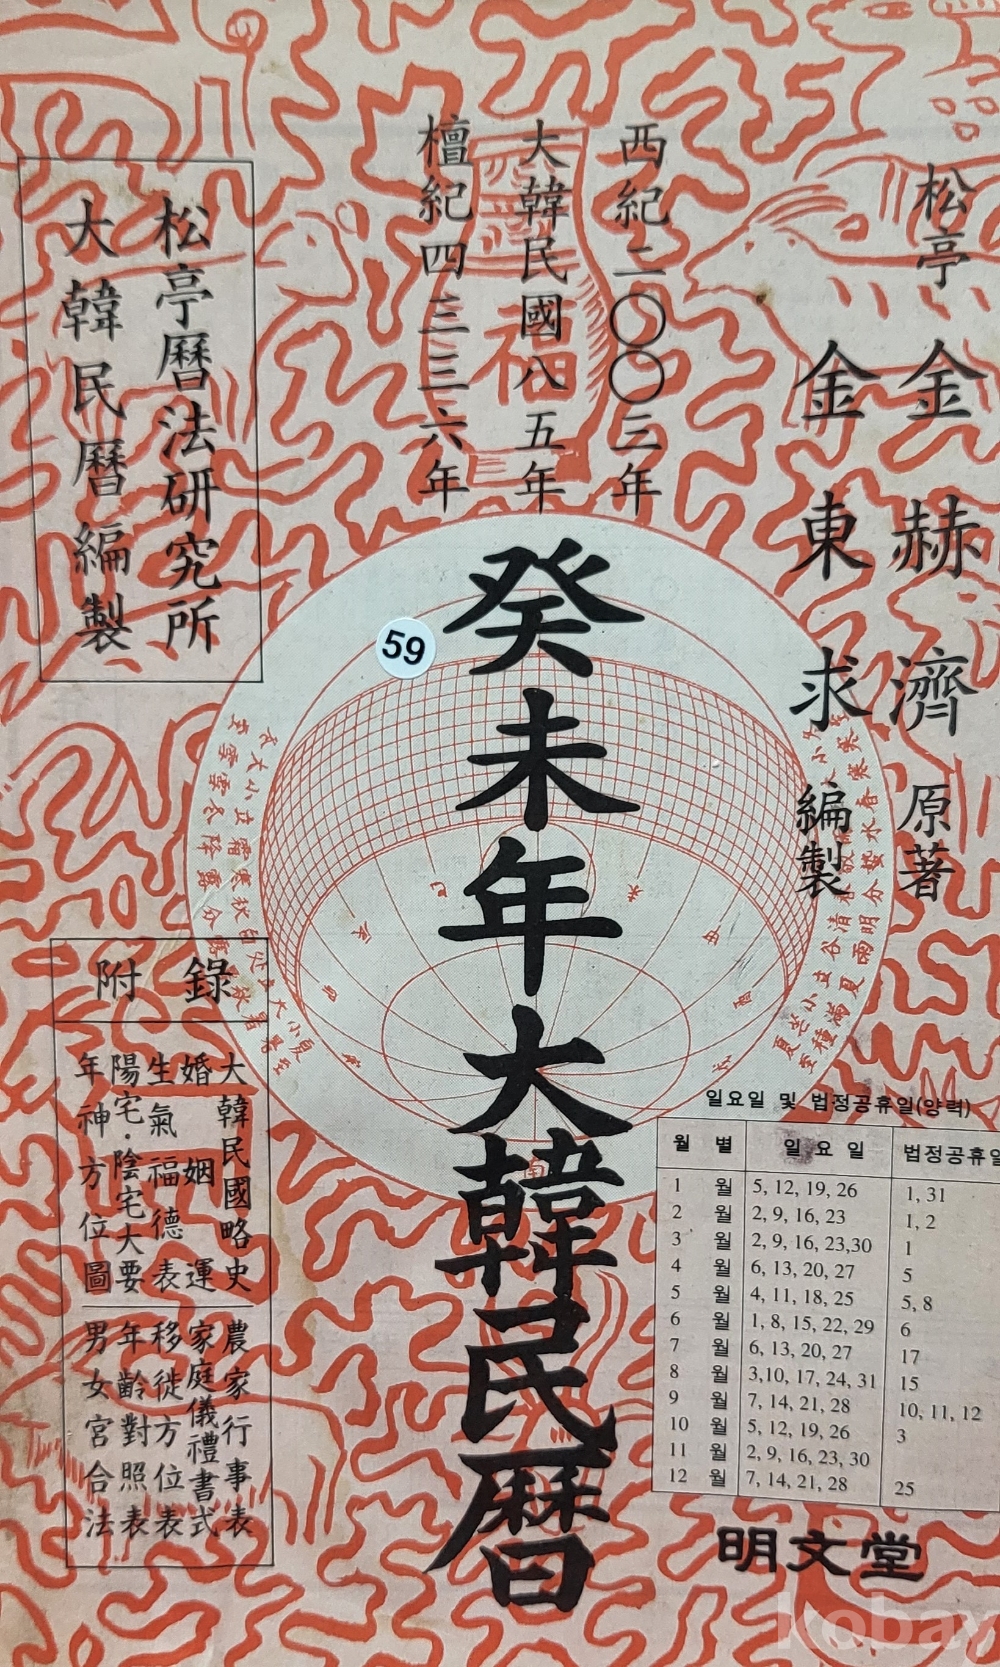 松亭 金赫濟 原著
金東求 編製
西紀二〇〇三年
大韓民國八五年
檀紀四三三六年
癸未年大韓民曆
松亭曆法研究所
大韓民曆編製
59
福
附錄
大韓民國略史
婚姻運
生氣福德表
陽宅·陰宅大要
年神方位圖
農家行事表
家庭儀禮書式
移徙方位表
年齡對照表
男女宮合法
일요일 및 법정공휴일(양력)
월 별 일 요 일 법정공휴일
1 월 5, 12, 19, 26 1, 31
2 월 2, 9, 16, 23 1, 2
3 월 2, 9, 16, 23,30 1
4 월 6, 13, 20, 27 5
5 월 4, 11, 18, 25 5, 8
6 월 1, 8, 15, 22, 29 6
7 월 6, 13, 20, 27 17
8 월 3,10, 17, 24, 31 15
9 월 7, 14, 21, 28 10, 11, 12
10 월 5, 12, 19, 26 3
11 월 2, 9, 16, 23, 30
12 월 7, 14, 21, 28 25
明文堂
kobay